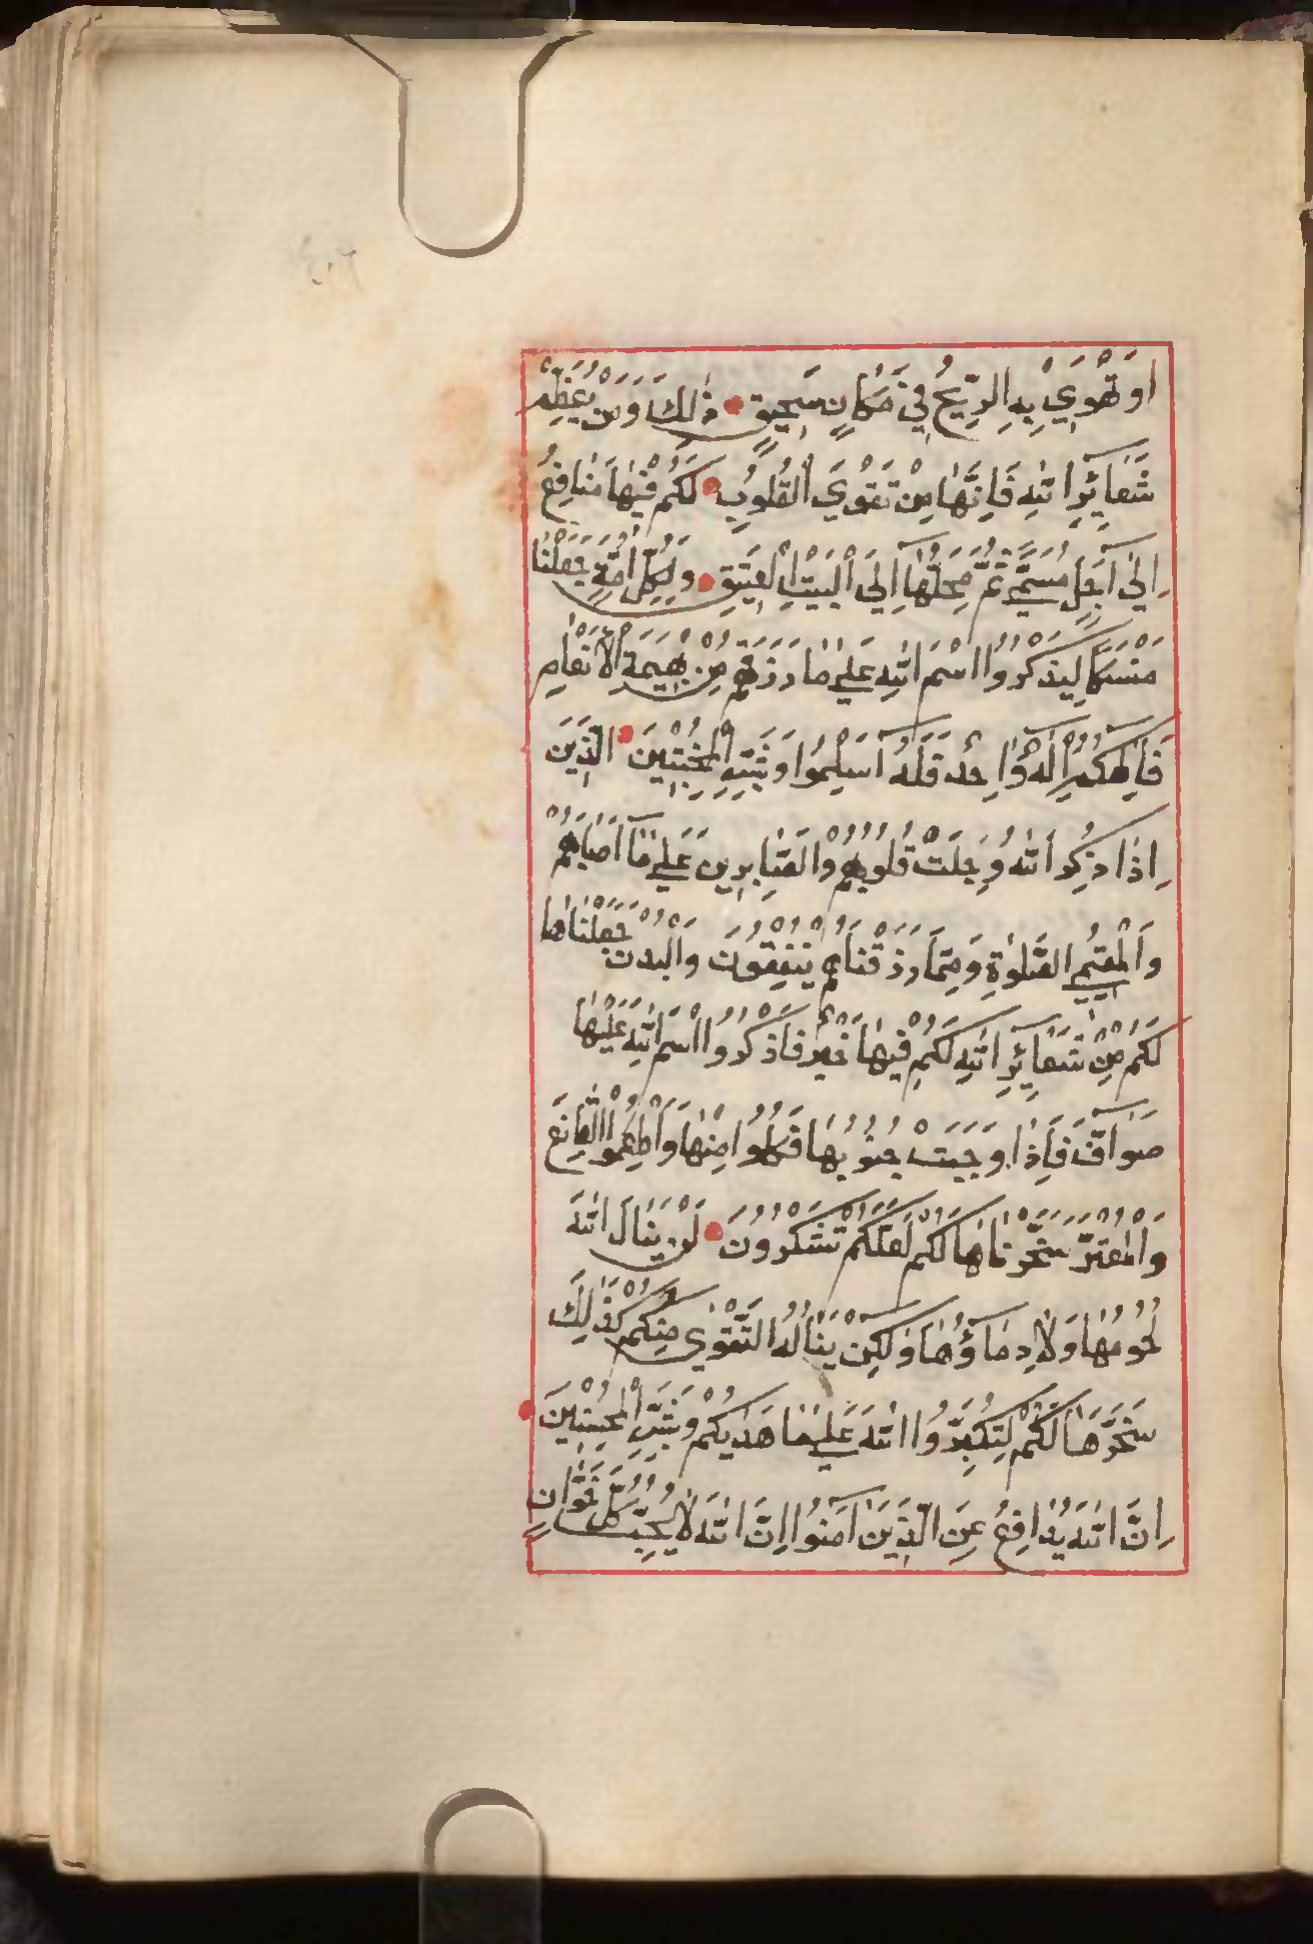 اَوْ تَهْوِي بِهِ الرِّيحُ فِي مَكَانٍ سَحِيقٍ ذٰلِكَ وَمَنْ يُعَظِّمْ
شَعَائِرَ اللّٰهِ فَاِنَّهَا مِنْ تَقْوَى الْقُلُوبِ لَكُمْ فِيهَا مَنَافِعُ
اِلٰى اَجَلٍ مُسَمًّى ثُمَّ مَحِلُّهَا اِلَى الْبَيْتِ الْعَتِيقِ وَلِكُلِّ اُمَّةٍ جَعَلْنَا
مَنْسَكًا لِيَذْكُرُوا اسْمَ اللّٰهِ عَلٰى مَا رَزَقَهُمْ مِنْ بَهِيمَةِ الْاَنْعَامِ
فَاِلٰهُكُمْ اِلٰهٌ وَاحِدٌ فَلَهُ اَسْلِمُوا وَبَشِّرِ الْمُخْبِتِينَ الَّذِينَ
اِذَا ذُكِرَ اللّٰهُ وَجِلَتْ قُلُوبُهُمْ وَالصَّابِرِينَ عَلٰى مَا اَصَابَهُمْ
وَالْمُقِيمِي الصَّلٰوةِ وَمِمَّا رَزَقْنَاهُمْ يُنْفِقُونَ وَالْبُدْنَ جَعَلْنَاهَا
لَكُمْ مِنْ شَعَائِرِ اللّٰهِ لَكُمْ فِيهَا خَيْرٌ فَاذْكُرُوا اسْمَ اللّٰهِ عَلَيْهَا
صَوَافَّ فَاِذَا وَجَبَتْ جُنُوبُهَا فَكُلُوا مِنْهَا وَاَطْعِمُوا الْقَانِعَ
وَالْمُعْتَرَّ سَخَّرْنَاهَا لَكُمْ لَعَلَّكُمْ تَشْكُرُونَ لَنْ يَنَالَ اللّٰهَ
لُحُومُهَا وَلَا دِمَاؤُهَا وَلٰكِنْ يَنَالُهُ التَّقْوٰى مِنْكُمْ كَذٰلِكَ
سَخَّرَهَا لَكُمْ لِتُكَبِّرُوا اللّٰهَ عَلٰى مَا هَدٰيكُمْ وَبَشِّرِ الْمُحْسِنِينَ
اِنَّ اللّٰهَ يُدَافِعُ عَنِ الَّذِينَ اٰمَنُوا اِنَّ اللّٰهَ لَا يُحِبُّ كُلَّ خَوَّانٍ